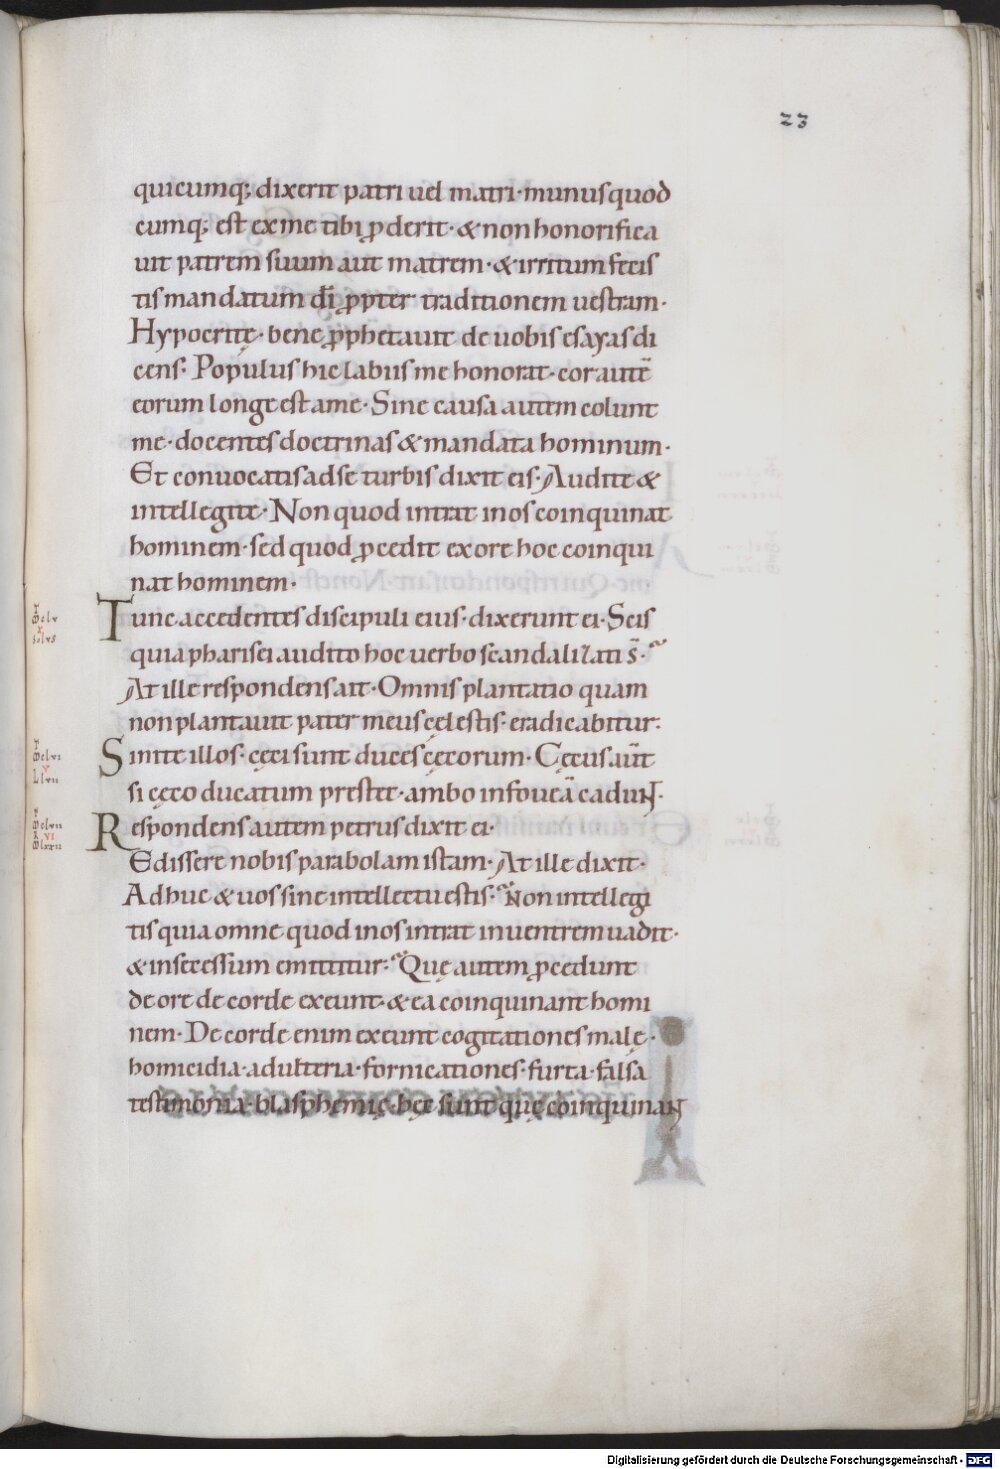 23
quicumq; dixerit patri uel matri · munus quod
cumq; est ex me tibi ꝓderit · & non honorifica
uit patrem suum aut matrem · & irritum fecis
tis mandatum dī ꝓpter traditionem uestram ·
Hypocritę · bene ꝓphetauit de uobis esayas di
cens · Populus hic labiis me honorat · cor autē
eorum longe est a me · Sine causa autem colunt
me · docentes doctrinas & mandata hominum ·
Et conuocatis ad se turbis dixit eis · Audite &
intellegite · Non quod intrat in os coinquinat
hominem · sed quod ꝓcedit ex ore hoc coinqui
nat hominem ·
Tunc accedentes discipuli eius · dixerunt ei · Scis
quia pharisei audito hoc uerbo scandalizati s̄ ·
At ille respondens ait · Omnis plantatio quam
non plantauit pater meus cęlestis · eradicabitur ·
Sinite illos · cęci sunt duces cęcorum · Cęcus aūt
si cęco ducatum prestet · ambo in foueā cadunt ·
Respondens autem petrus dixit ei ·
Edissere nobis parabolam istam · At ille dixit ·
Adhuc & uos sine intellectu estis · Non intellegi
tis quia omne quod in os intrat in uentrem uadit ·
& in secessum emittitur · Quę autem ꝓcedunt
de ore de corde exeunt · & ea coinquinant homi
nem · De corde enim exeunt cogitationes malę ·
homicidia · adulteria · fornicationes · furta · falsa
testimonia · blasphemię · hęc sunt quę coinquinant
Digitalisierung gefördert durch die Deutsche Forschungsgemeinschaft - DFG